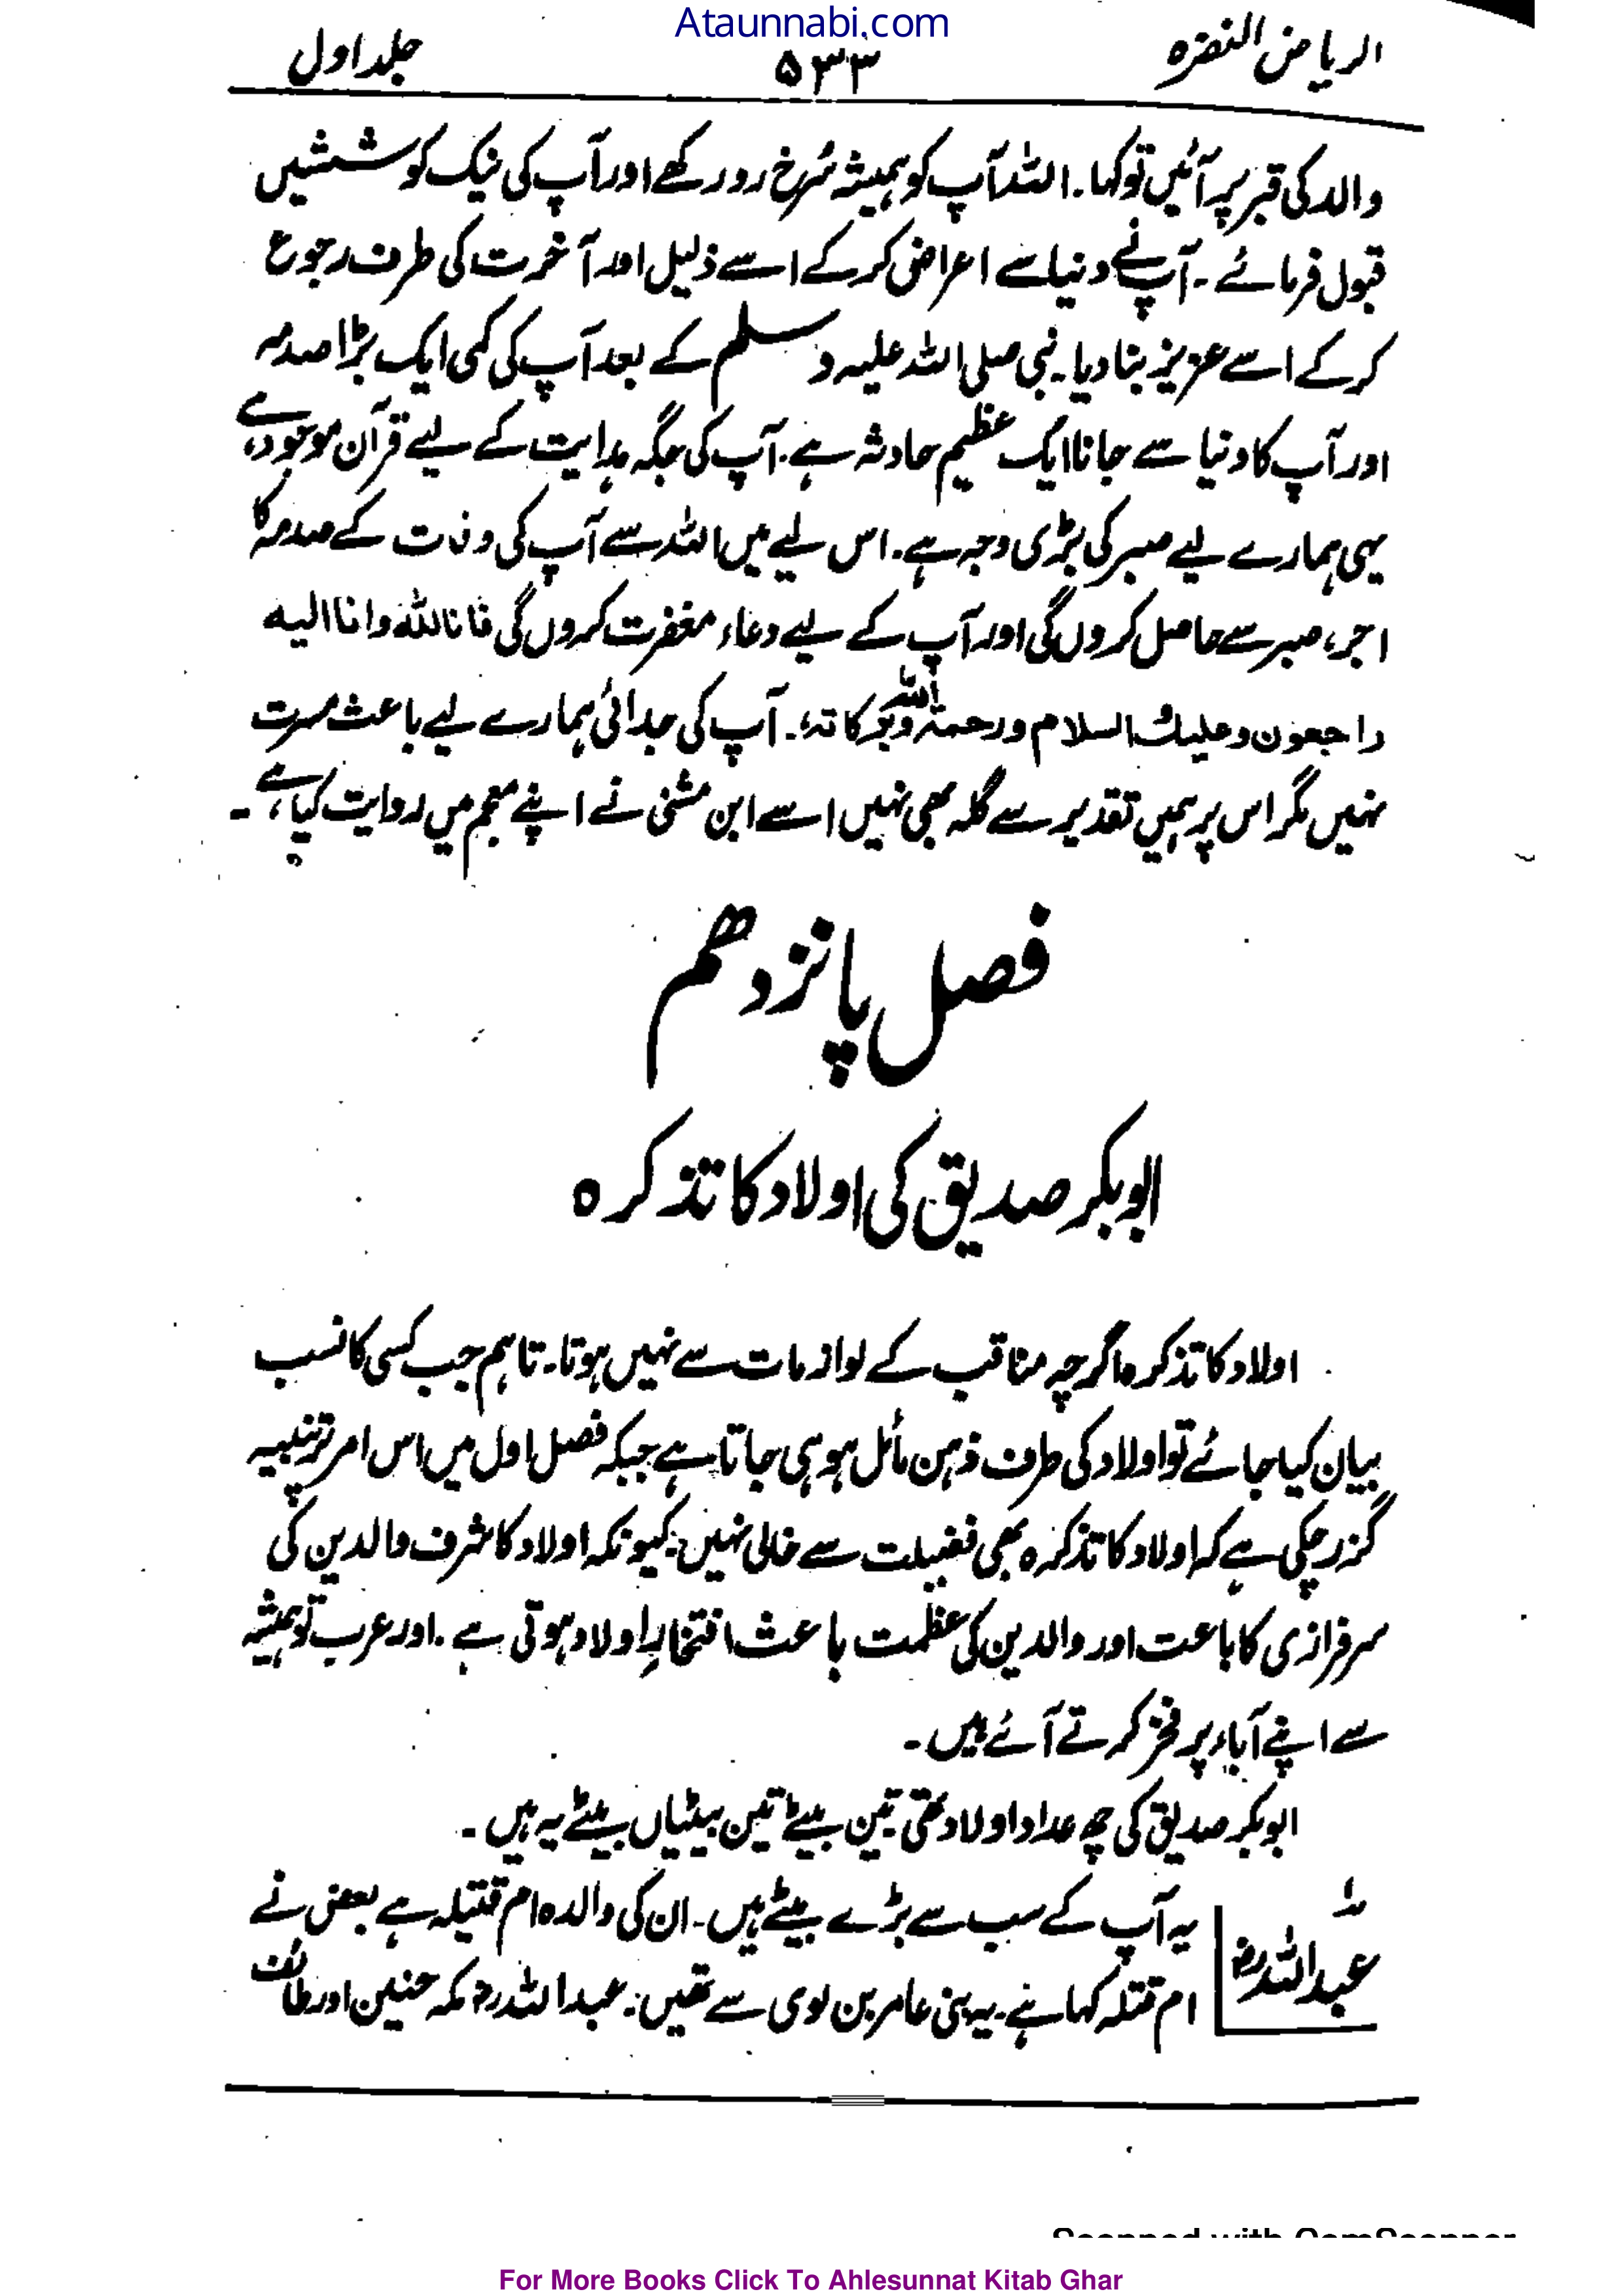 Ataunnabi.com
الریاض النضرہ ۵۳۳ جلد اول
والد کی قبر پر آئیں تو کہا۔ اللہ آپ کو ہمیشہ سُرخ رو رکھے اور آپ کی نیک کوششیں
قبول فرمائے۔ آپ نے دنیا سے اعراض کر کے اسے ذلیل اور آخرت کی طرف رجوع
کر کے اسے عزیز بنا دیا۔ نبی صلی اللہ علیہ وسلم کے بعد آپ کی کمی ایک بڑا صدمہ
اور آپ کا دنیا سے جانا ایک عظیم حادثہ ہے۔ آپ کی جگہ ہدایت کے لیے قرآن موجود ہے،
یہی ہمارے لیے صبر کی بڑی وجہ ہے۔ اس لیے میں اللہ سے آپ کی وفات کے صدمہ کا
اجر، صبر سے حاصل کروں گی اور آپ کے لیے دعاء مغفرت کروں گی فانا للہ وانا الیہ
راجعون وعلیک السلام ورحمۃ اللہ وبرکاتہ،۔ آپ کی جدائی ہمارے لیے باعث مسرت
نہیں مگر اس پر ہمیں تقدیر سے گلہ بھی نہیں اسے ابن مثنی نے اپنے معجم میں روایت کیا ہے،۔
فصل پانزدھم
ابوبکر صدیق کی اولاد کا تذکرہ
اولاد کا تذکرہ اگرچہ مناقب کے لوازمات سے نہیں ہوتا۔ تاہم جب کسی کا نسب
بیان کیا جائے تو اولاد کی طرف ذہن مائل ہو ہی جاتا ہے جبکہ فصل اول میں اس امر پر تنبیہ
گزر چکی ہے کہ اولاد کا تذکرہ بھی فضیلت سے خالی نہیں۔ کیونکہ اولاد کا شرف والدین کی
سرفرازی کا باعث اور والدین کی عظمت باعث افتخارِ اولاد ہوتی ہے۔ اور عرب تو ہمیشہ
سے اپنے آباء پر فخر کرتے آئے ہیں۔
ابوبکر صدیق کی چھ عدد اولاد تھی تین بیٹے تین بیٹیاں بیٹے یہ ہیں۔
یہ آپ کے سب سے بڑے بیٹے ہیں۔ ان کی والدہ ام قتیلہ ہے بعض نے
عبداللہ رض
ام قتلہ کہا ہے۔ یہ بنی عامر بن لوی سے تھیں۔ عبداللہ رض مکہ حنین اور طائف
Scanned with CamScanner
For More Books Click To Ahlesunnat Kitab Ghar